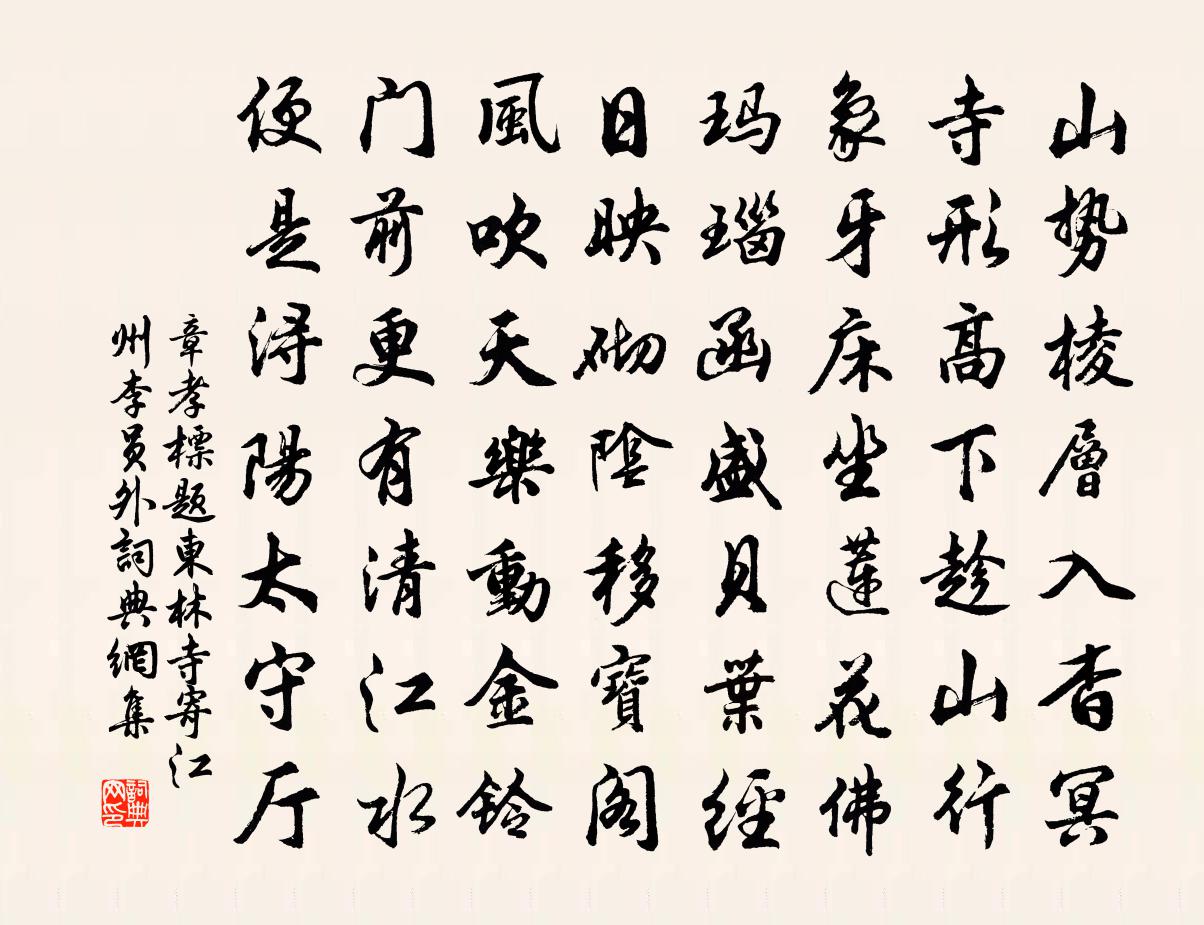 山势棱層入杳冥
寺形高下趁山行
象牙床坐蓮花佛
玛瑙函盛貝葉經
日映砌陰移寶阁
風吹天樂動金鈴
门前更有清江水
便是浔陽太守厅
章孝標題東林寺寄江
州李員外詞典網集
詞典
网印